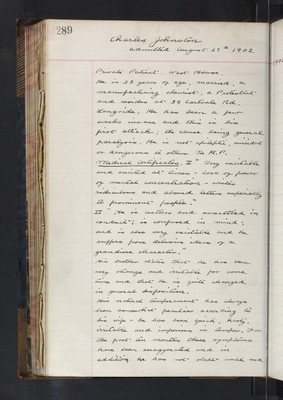 289
Charles Johnston
admitted August 23rd 1902.
Private Patient. West House.
He is 38 years of age, married, a
manufacturing chemist, a Protestant
and resides at 39 Rd,
. He has been a few
weeks insane and this is his
first attack; the cause being general
paralysis. He is not epileptic, suicidal
or dangerous to others.
Medical Certificates. I " Very excitable
and excited at times - loss of power
of mental concentration - writes
ridiculous and absurd letters especially
to prominent people."
II "He is restless and unsettled in
conduct; is confused in mind
and is also very excitable and he
suffers from delusive ideas of a
grandiose character."
His brother states that he has been
very strange and irritable for some
time and that he is quite changed
in general disposition.
His natural temperament has always
been somewhat peculiar according to
his wife - he has been quick, hasty,
irritable and imperious in temper. For
the past six months these symptoms
have been exaggerated and in
addition he has not slept well and